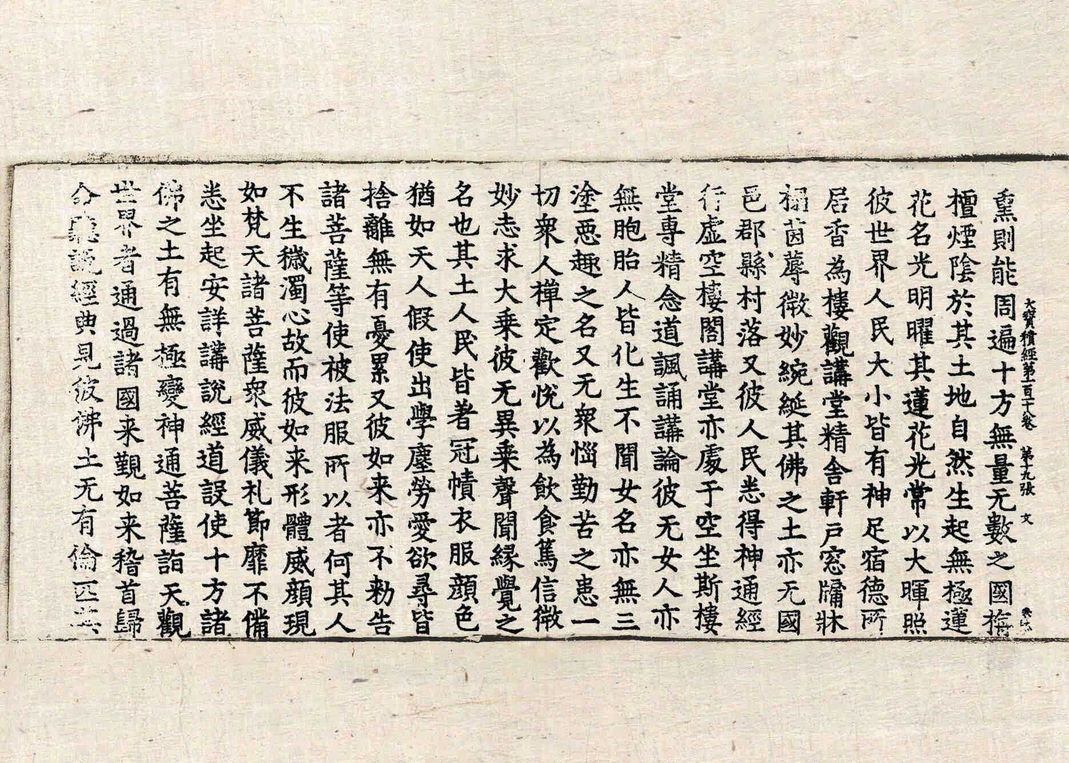 熏則能周遍十方無量无數之國栴
大寶積經第一百十八卷 第十九張 文
檀煙陰於其土地自然生起無極蓮
花名光明曜其蓮花光常以大暉照
彼世界人民大小皆有神足宿德所
居香為樓觀講堂精舍軒戶窓牖牀
榻茵蓐微妙綩綖其佛之土亦无國
邑郡縣村落又彼人民悉得神通經
行虛空樓閣講堂亦處于空坐斯樓
堂專精念道諷誦講論彼无女人亦
無胞胎人皆化生不聞女名亦無三
塗惡趣之名又无衆惱勤苦之患一
切衆人禪定歡悅以為飮食篤信微
妙志求大乘彼无異乘聲聞緣覺之
名也其土人民皆著冠幘衣服顔色
猶如天人假使出學塵勞愛欲尋皆
捨離無有憂累又彼如来亦不勑告
諸菩薩等使被法服所以者何其人
不生穢濁心故而彼如来形體威顔現
如梵天諸菩薩衆威儀礼節靡不備
悉坐起安詳講說經道設使十方諸
佛之土有無極變神通菩薩詣天觀
世界者通過諸國来覲如来稽首歸
命聽說經典見彼佛土无有倫匹其